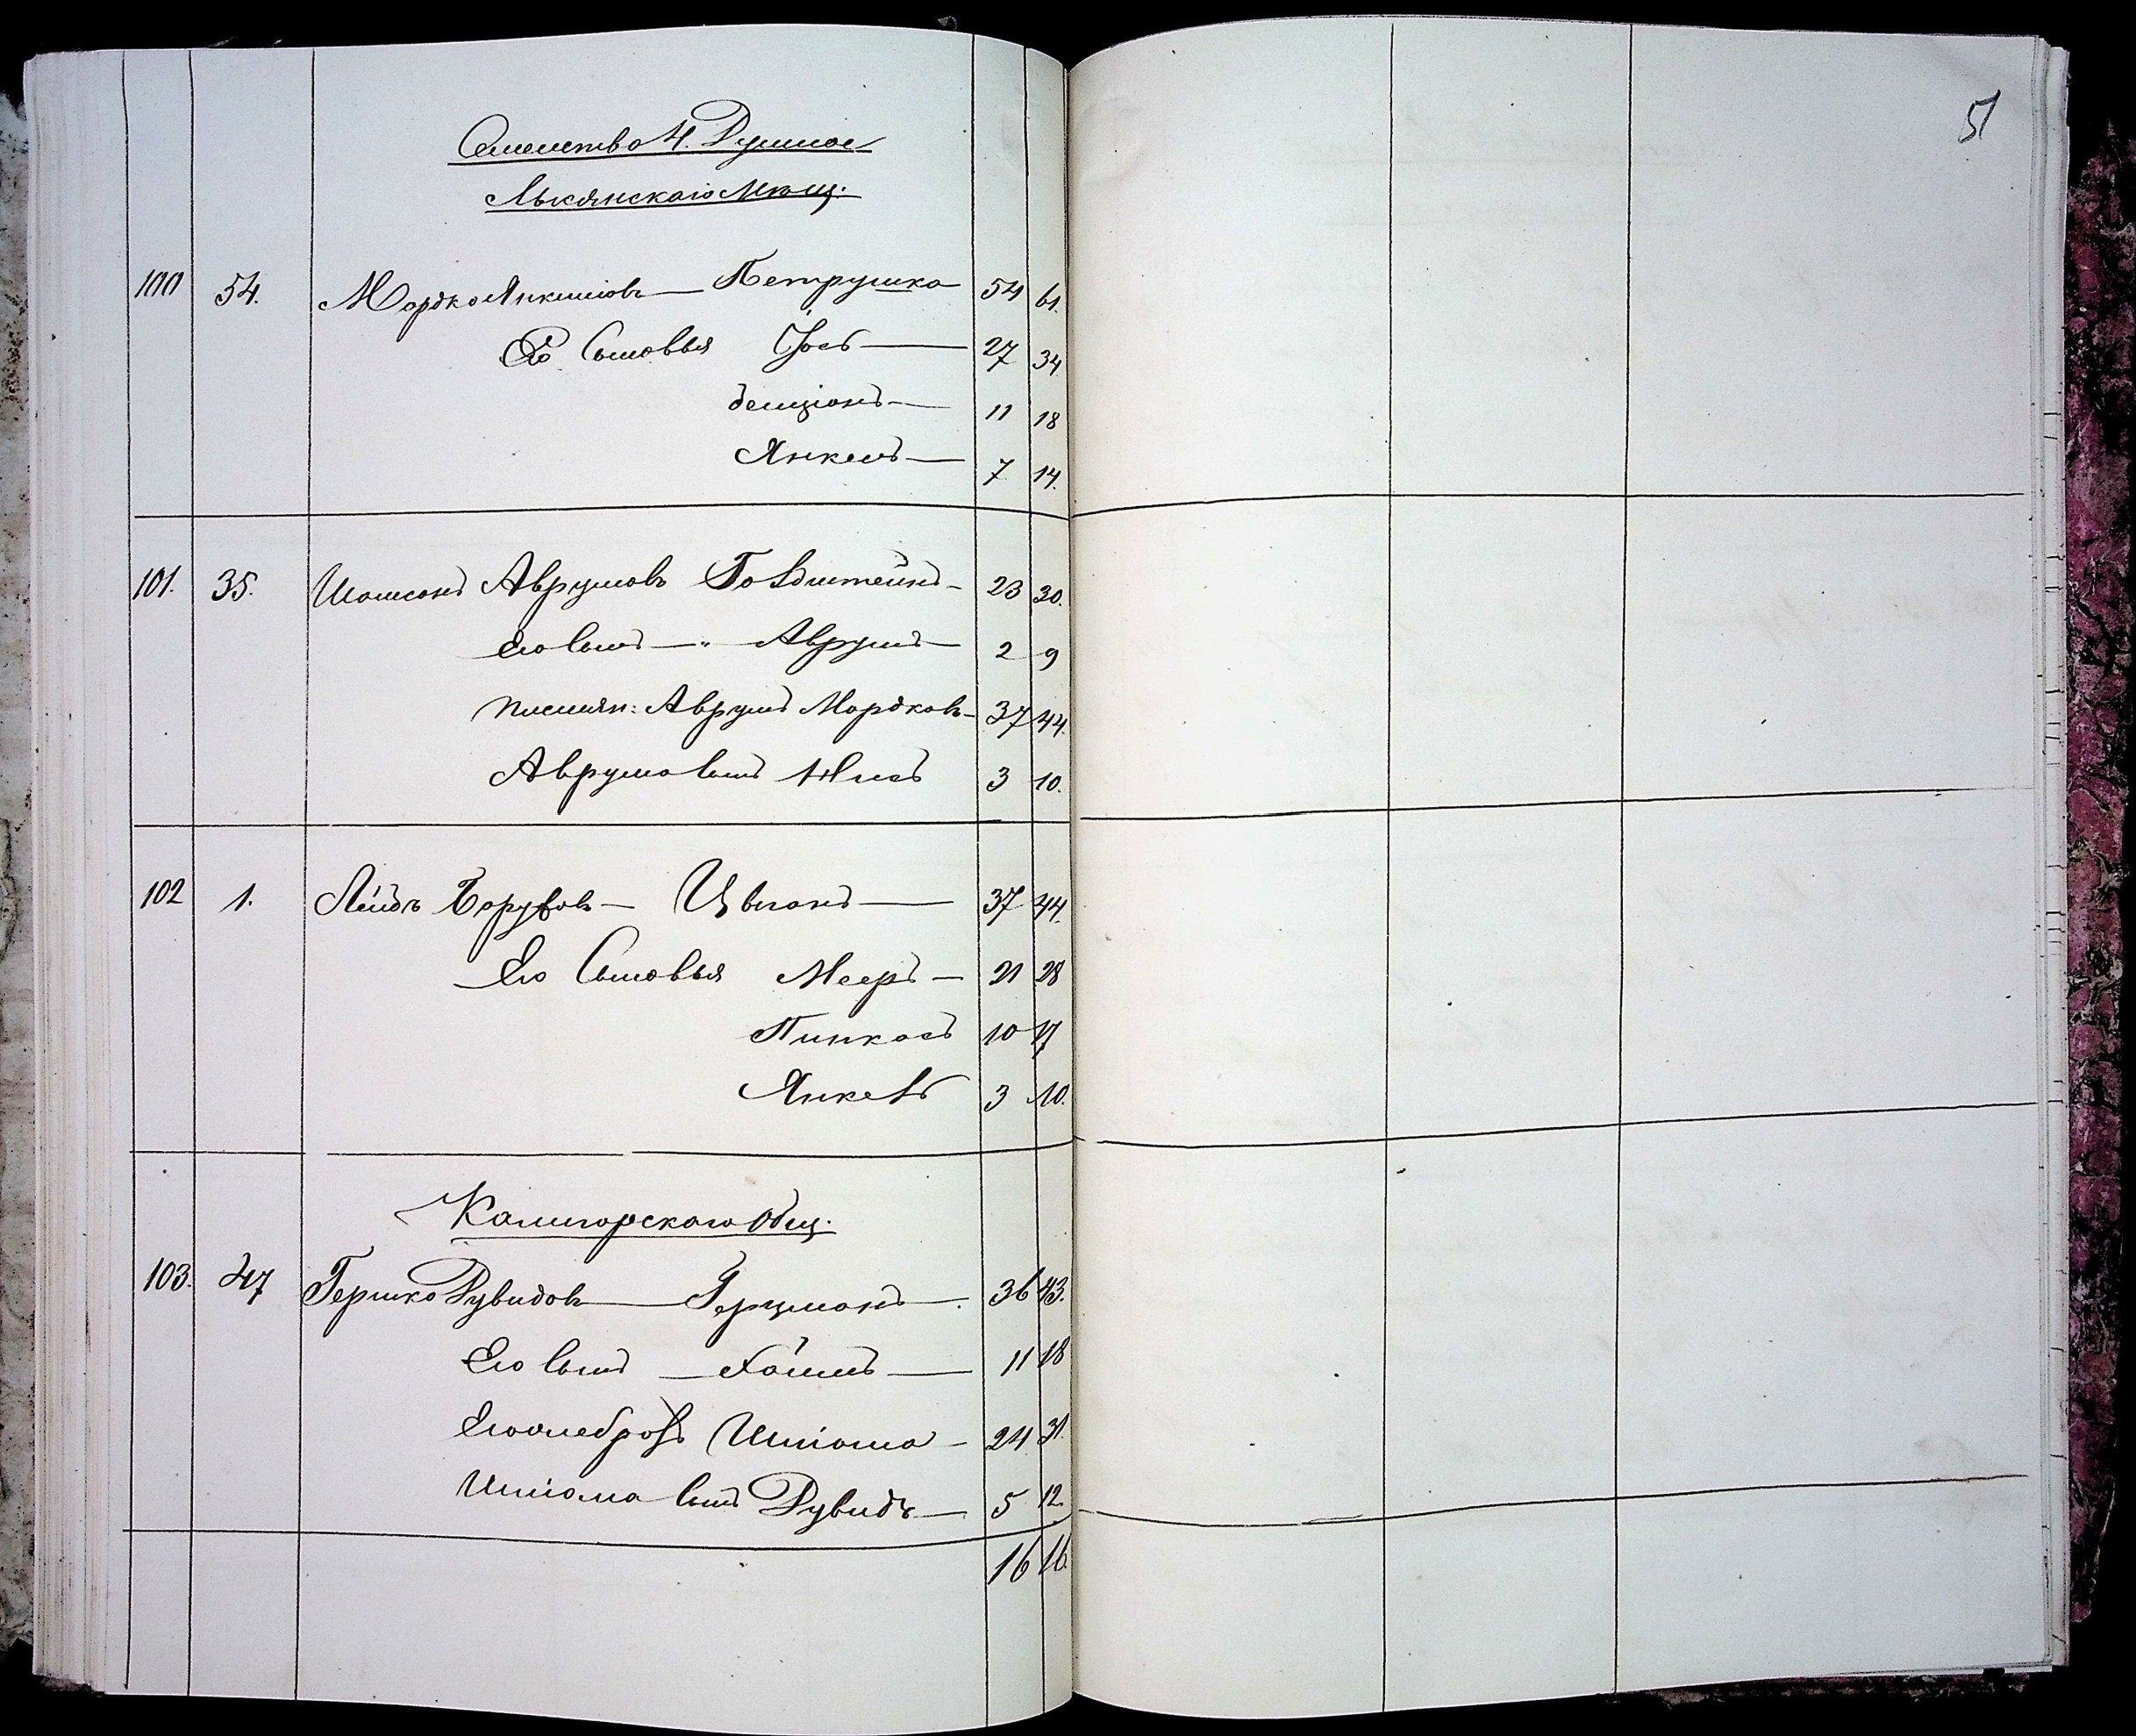 Семейство 4. Душное
Лысянскаго Мѣщ.
100 54. Мордко Янкелевъ — Петрушка 54 61.
Его Сыновья Іось — 27 34
Бенціонъ — 11 18
Янкель — 7 14.
101. 35. Шамсонъ Аврумовъ Гольдштейнъ — 23 30.
Его сынъ — " Аврумъ — 2 9
племян: Аврумъ Мордковъ — 37 44.
Аврума сынъ 3 10.
102 1. Лейбъ Боруховъ — 37 44.
Его Сыновья Мееръ — 21 28
Пинкасъ 10 17
Янкель 3 10.
Калигорского Общ.
103. 47 Гершко Рувиновъ — 36 43.
Его сынъ — Хаимъ — 11 18
24 31.
сынъ Рувинъ — 5 12.
16 16.
51